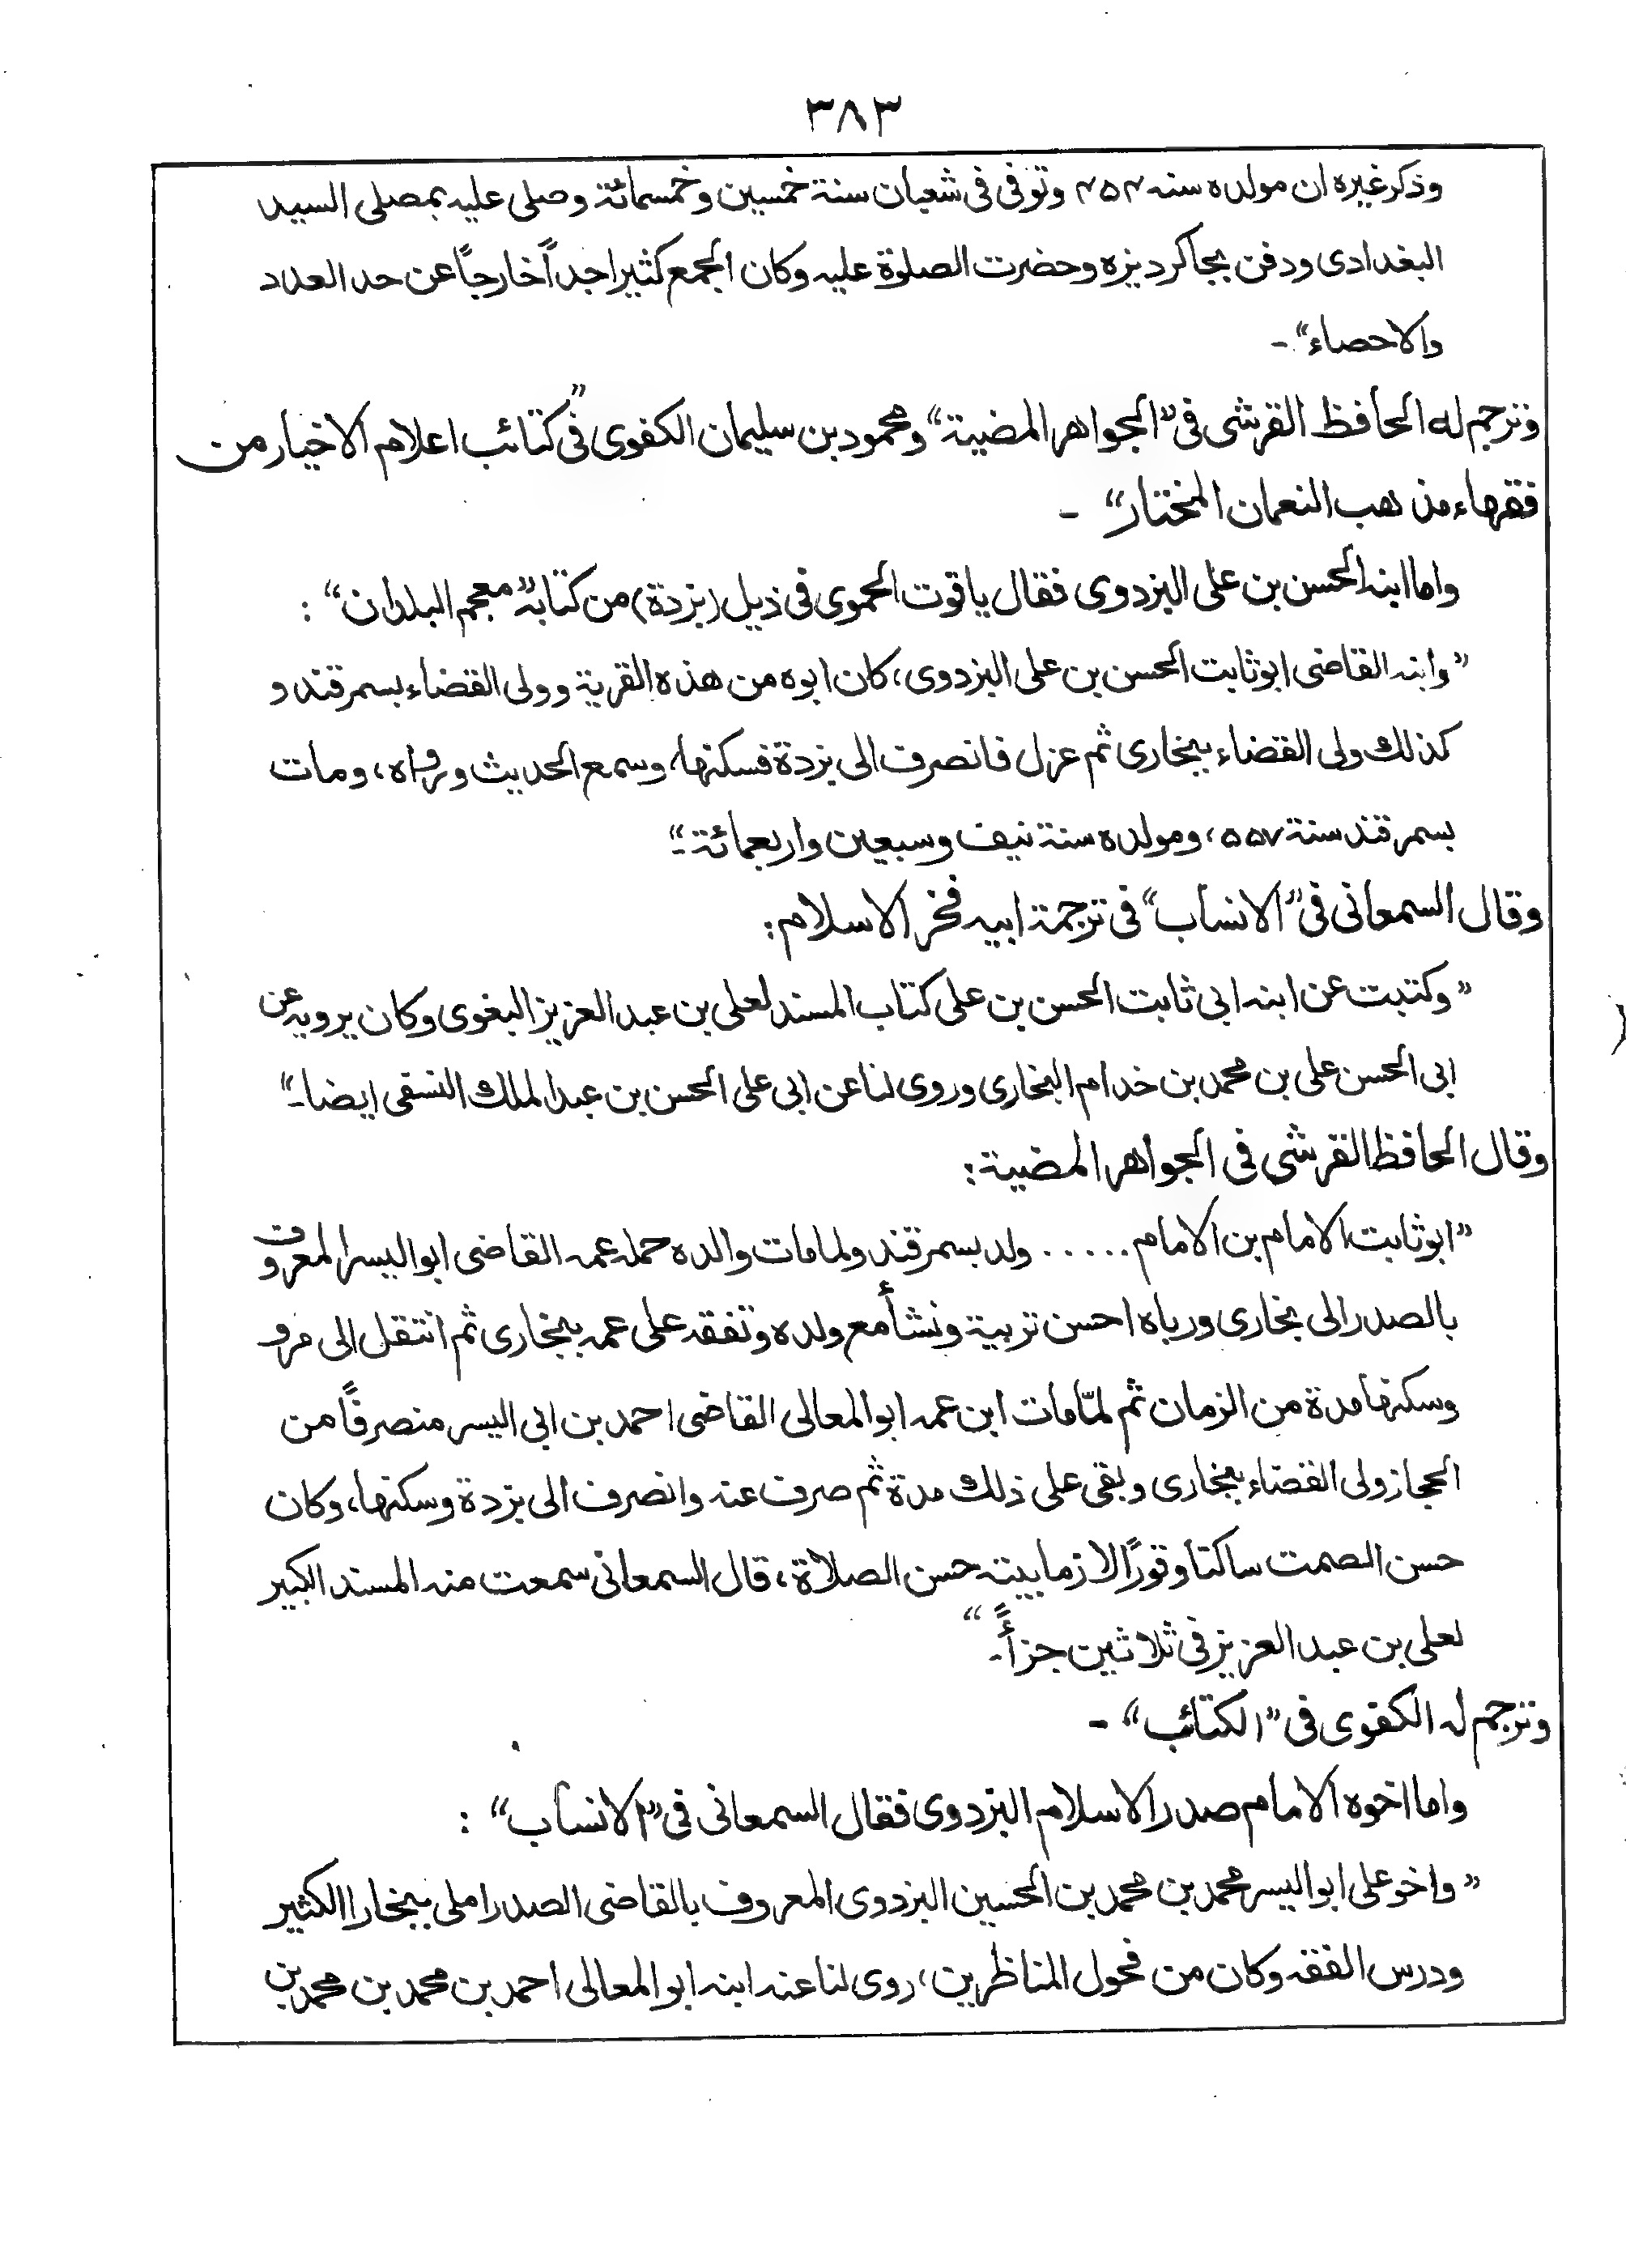 ٣٨٣
وذكر غيره ان مولده سنه ٤٥٤ وتوفى فى شعبان سنة خمسين وخمسمائة وصلى عليه بمصلى السيد
البغدادى ودفن بجاكرديزه وحضرت الصلوة عليه وكان الجمع كثيرا جداً خارجاً عن حد العدد
والاحصاء“ -
وترجم له الحافظ القرشى فى ”الجواهر المضية“ ومحمود بن سليمان الكفوى فى ”كتائب اعلام الاخيار من
فقهاء مذهب النعمان المختار“ -
واما ابنه الحسن بن على البزدوى فقال ياقوت الحموى فى ذيل (بزدة) من كتابه ”معجم البلدان“ :
”وابنه القاضى ابو ثابت الحسن بن على البزدوى، كان ابوه من هذه القرية وولى القضاء بسمرقند و
كذلك ولى القضاء ببخارى ثم عزل فانصرف الى بزدة فسكنها، وسمع الحديث ورواه، ومات
بسمرقند سنة ٥٥٧، ومولده سنة نيف وسبعين واربعمائة -“
وقال السمعانى فى ”الانساب“ فى ترجمة ابيه فخر الاسلام:
”وكتبت عن ابنه ابى ثابت الحسن بن على كتاب المسند لعلى بن عبد العزيز البغوى وكان يرويه عن
ابى الحسن على بن محمد بن خدام البخارى وروى لنا عن ابى على الحسن بن عبد الملك النسفى ايضا -“
وقال الحافظ القرشى فى الجواهر المضية:
”ابو ثابت الامام بن الامام ...... ولد بسمرقند ولما مات والده حمله عمه القاضى ابو اليسر المعروف
بالصدر الى بخارى ورباه احسن تربية ونشأ مع ولده وتفقه على عمه ببخارى ثم انتقل الى مرو
وسكنها مدة من الزمان ثم لمّا مات ابن عمه ابو المعالى القاضى احمد بن ابى اليسر منصرفاً من
الحجاز ولى القضاء ببخارى وبقى على ذلك مدة ثم صرف عنه وانصرف الى بزدة وسكنها، وكان
حسن الصمت ساكتا وقورًا لازما بيته حسن الصلاة، قال السمعانى سمعت منه المسند الكبير
لعلى بن عبد العزيز فى ثلاثين جزأً -“
وترجم له الكفوى فى ”الكتائب“ -
واما اخوه الامام صدر الاسلام البزدوى فقال السمعانى فى ”الانساب“ :
”واخو على ابو اليسر محمد بن محمد بن الحسين البزدوى المعروف بالقاضى الصدر املى ببخارا الكثير
ودرس الفقه وكان من فحول المناظرين، روى لنا عنه ابنه ابو المعالى احمد بن محمد بن محمد بن